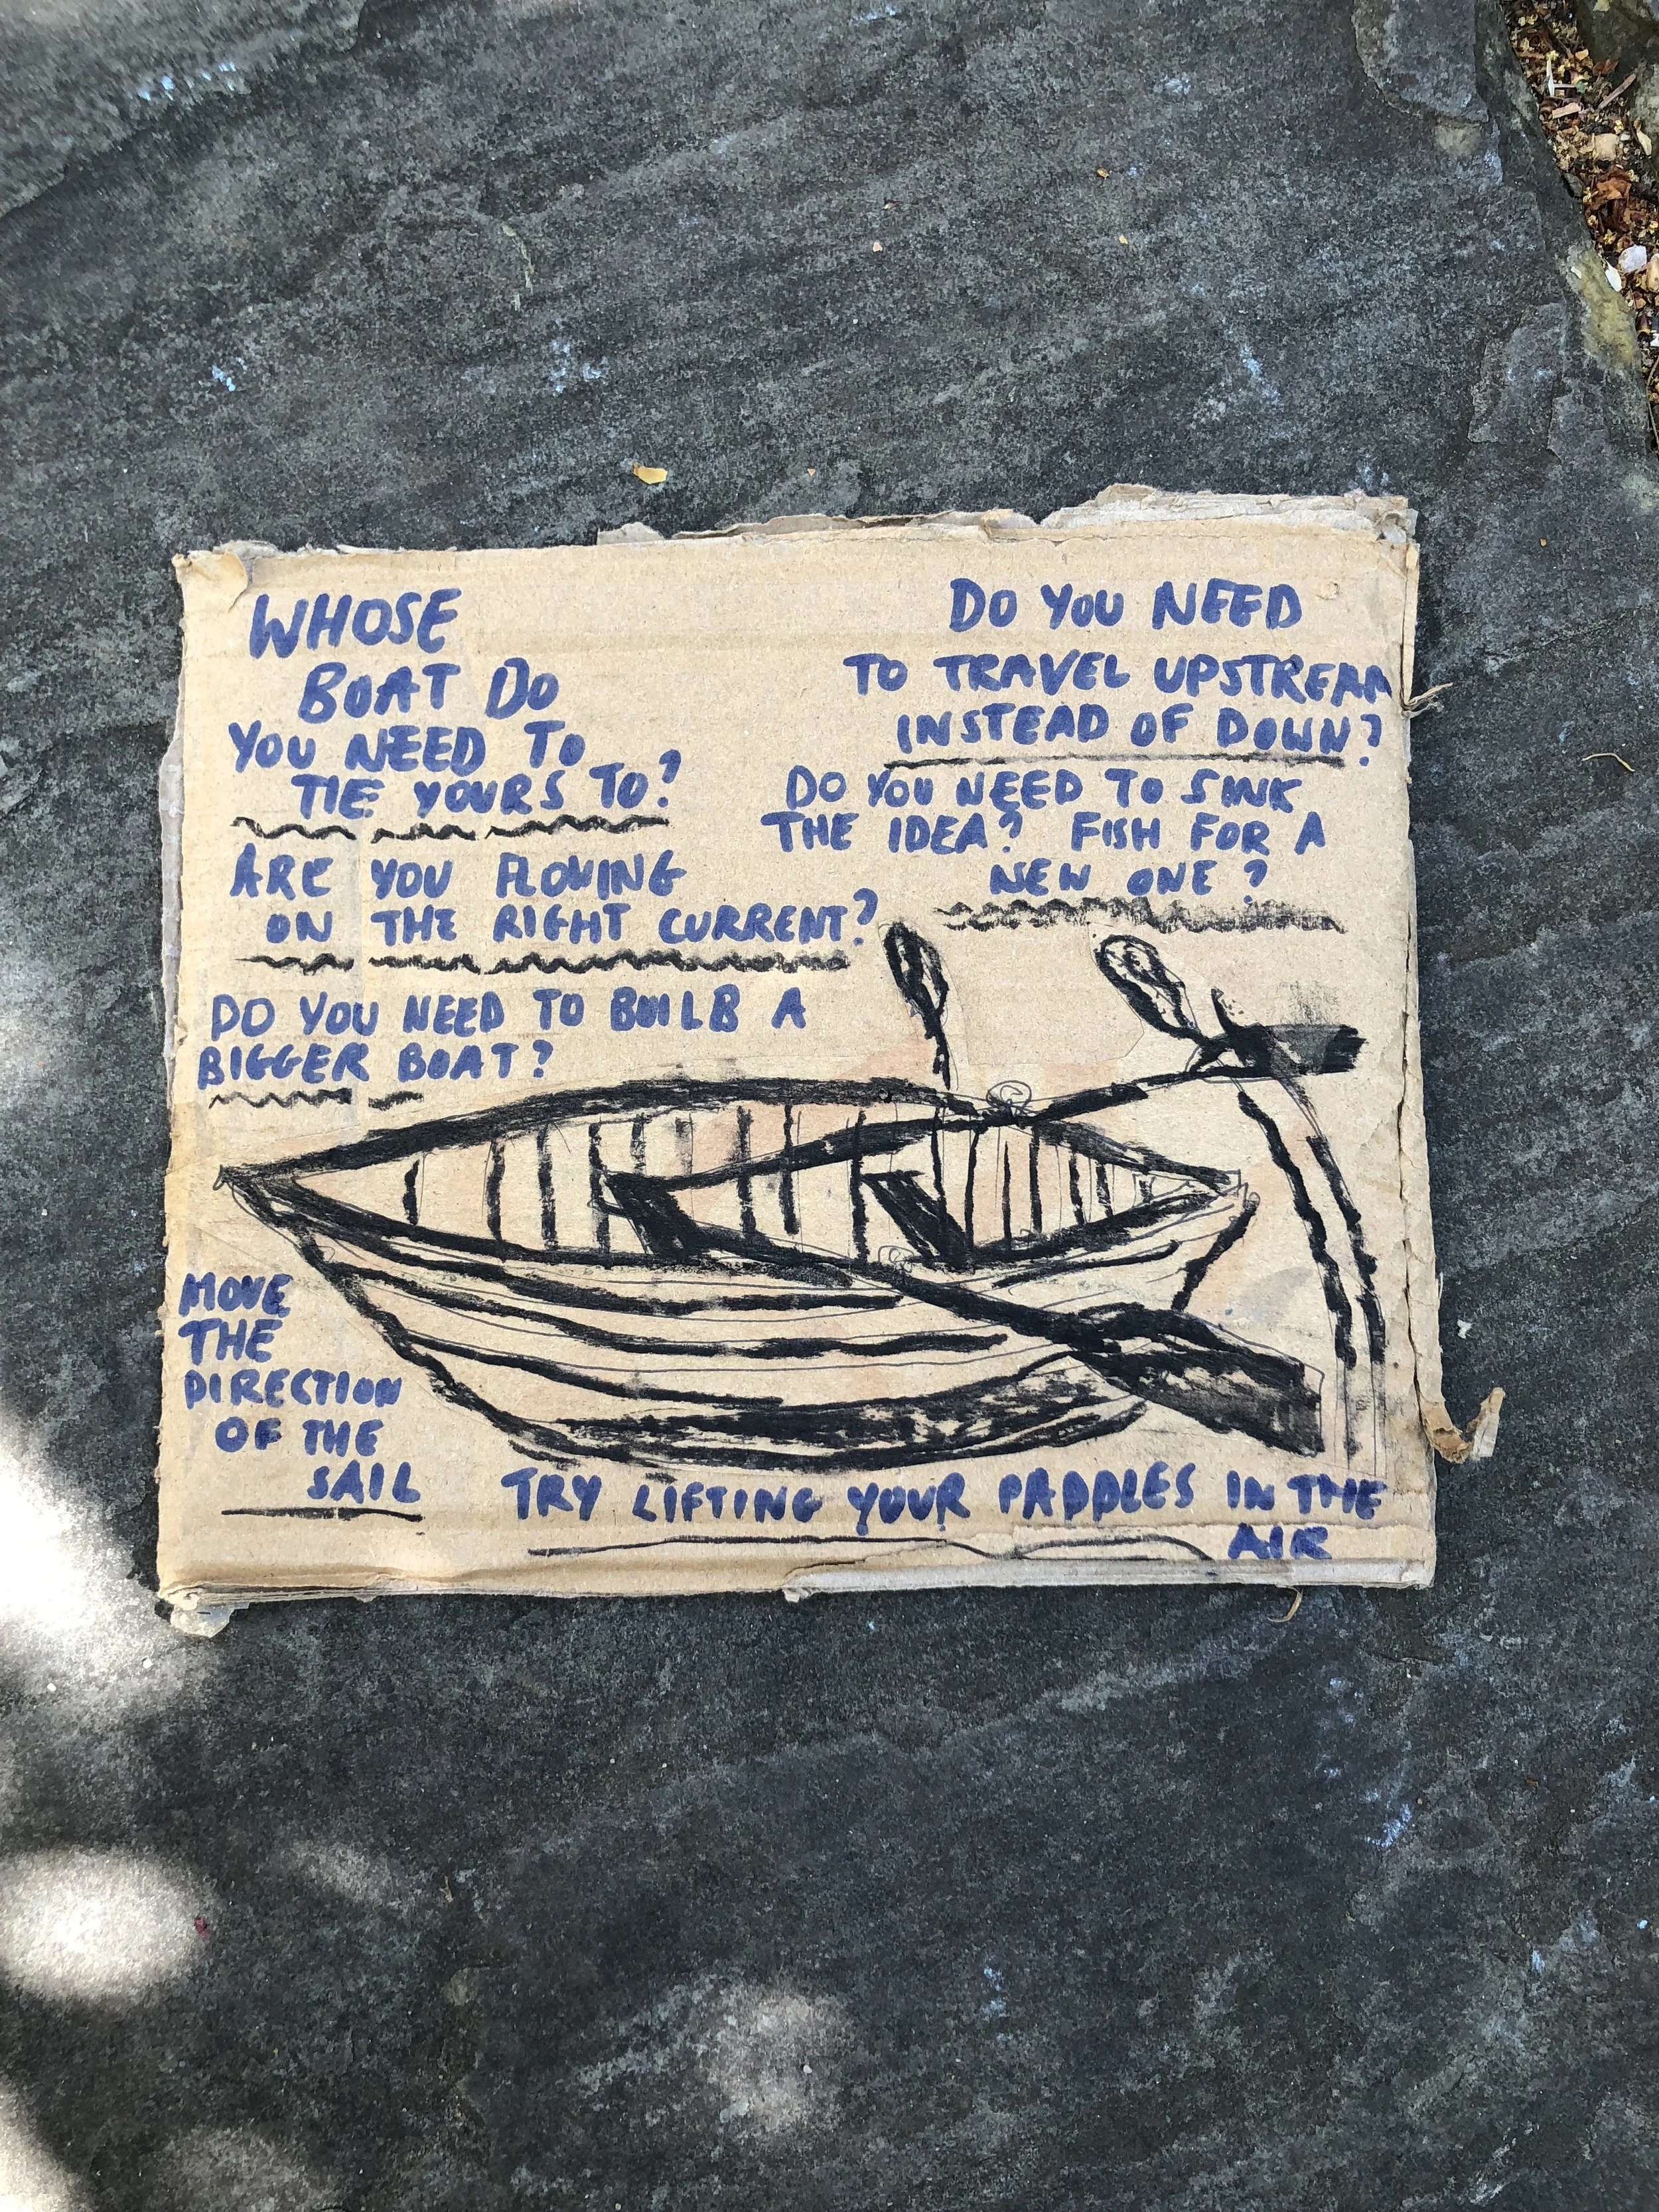 WHOSE
BOAT DO
YOU NEED TO
TIE YOURS TO?
ARE YOU FLOWING
ON THE RIGHT CURRENT?
DO YOU NEED TO BUILB A
BIGGER BOAT?
DO YOU NEED
TO TRAVEL UPSTREAM
INSTEAD OF DOWN?
DO YOU NEED TO SINK
THE IDEA? FISH FOR A
NEW ONE?
MOVE
THE
DIRECTION
OF THE
SAIL
TRY LIFTING YOUR PADDLES IN THE
AIR